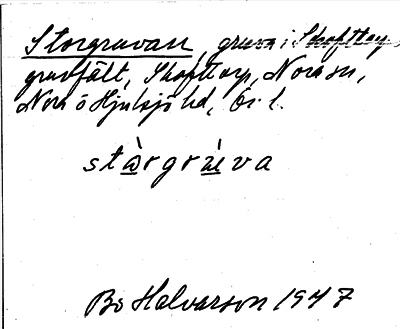 Storgruvan, gruva i Skofttorps
gruvfält, Skofttorp, Nora sn,
Nora o Hjulsjö hd, Ör. l.
stàrgrùva
Bo Halvarson 1947